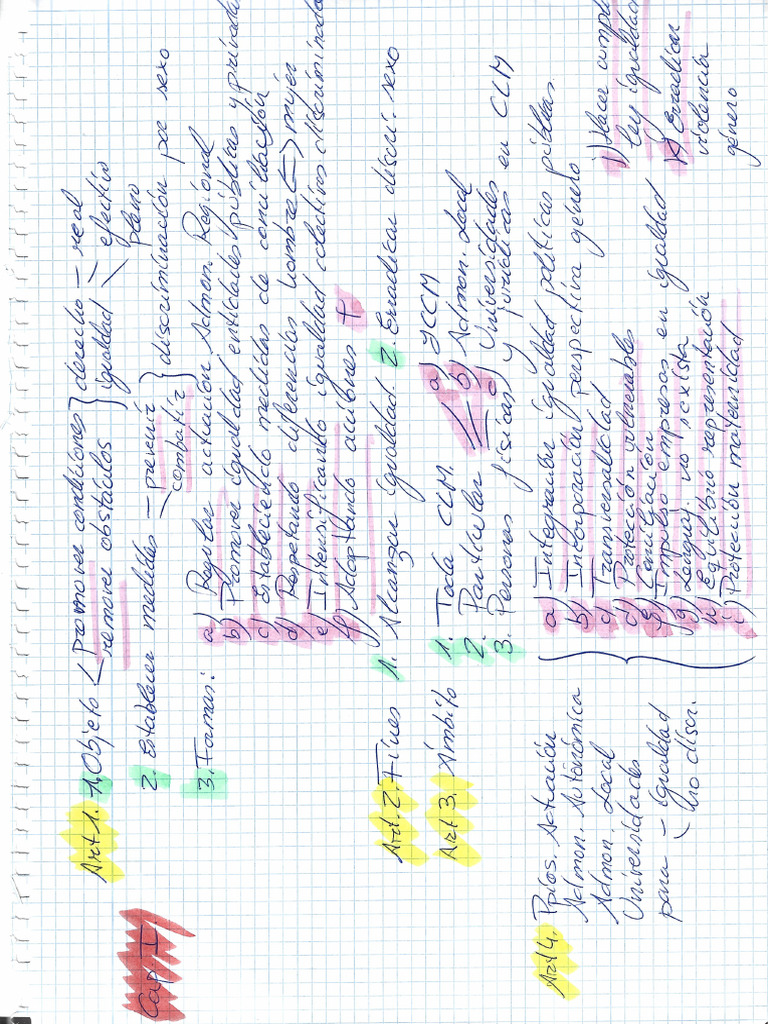 Cap. I.
Art 1. 1. Objeto promover condiciones derecho — real
remover obstáculos igualdad efectivo
pleno
2. Establecer medidas — prevenir discriminación por sexo
combatir
3. Formas:
a) Regular actuación Admon Regional
b) Promover igualdad entidades públicas y privada
c) Estableciendo medidas de conciliación
d) Respetando diferencias hombre <=> mujer
e) Intensificando igualdad colectivos discriminado
f) Adoptando acciones +
Art. 2. Fines 1. Alcanzar igualdad. 2. Erradicar discri. sexo
Art 3. Ámbito 1. Toda CLM.
2. Particular a) JCCM
b) Admon. Local
c) Universidades
3. Personas físicas y jurídicas en CLM
Art 4. Ppios. Actuación
Admon. Autonómica
Admon. Local
Universidades
para — igualdad
no discr.
a) Integración igualdad políticas públicas
b) Incorporación perspectiva género
c) Transversalidad
d) Protección vulnerables
e) Conciliación
f) Impulso empresas en igualdad
g) Lenguaj. no sexista
h) Equilibrio representación
i) Protección maternidad
j) Hacer cumpl
ley igualdad
k) Erradicar
violencia
género